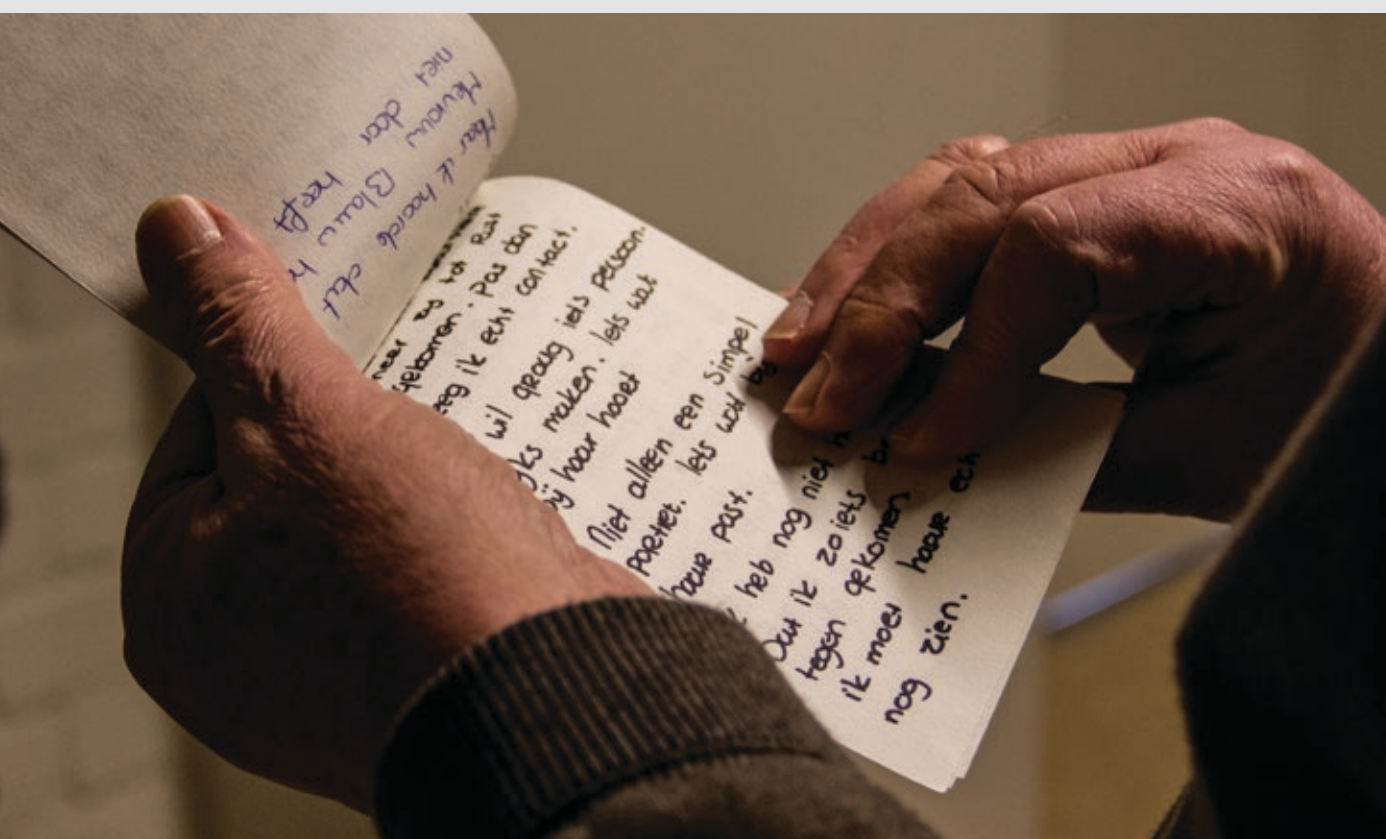 Maar ik hoorde dat
Mevrouw Blauw h
niet door heeft
neer zij tot Rust
gekomen. Pas dan
eeg ik echt contact.
wil graag iets persoon-
ijks maken. Iets wat
bij haar hoort
Niet alleen een simpel
portret. Iets wat bij
haar past.
heb nog niet h
Dat ik zoiets br
tegen gekomen
ik moet haar ech
nog zien.